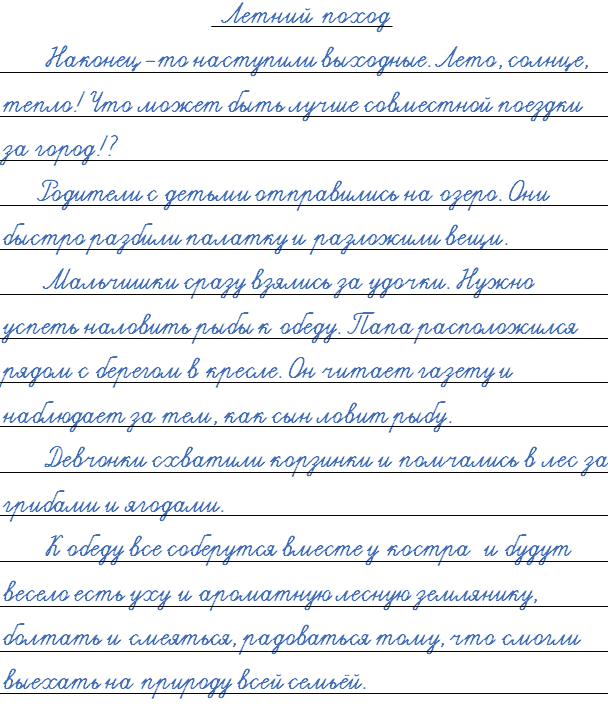 Летний поход
Наконец-то наступили выходные. Лето, солнце,
тепло! Что может быть лучше совместной поездки
за город!?
Родители с детьми отправились на озеро. Они
быстро разбили палатку и разложили вещи.
Мальчишки сразу взялись за удочки. Нужно
успеть наловить рыбы к обеду. Папа расположился
рядом с берегом в кресле. Он читает газету и
наблюдает за тем, как сын ловит рыбу.
Девчонки схватили корзинки и помчались в лес за
грибами и ягодами.
К обеду все соберутся вместе у костра и будут
весело есть уху и ароматную лесную землянику,
болтать и смеяться, радоваться тому, что смогли
выехать на природу всей семьёй.